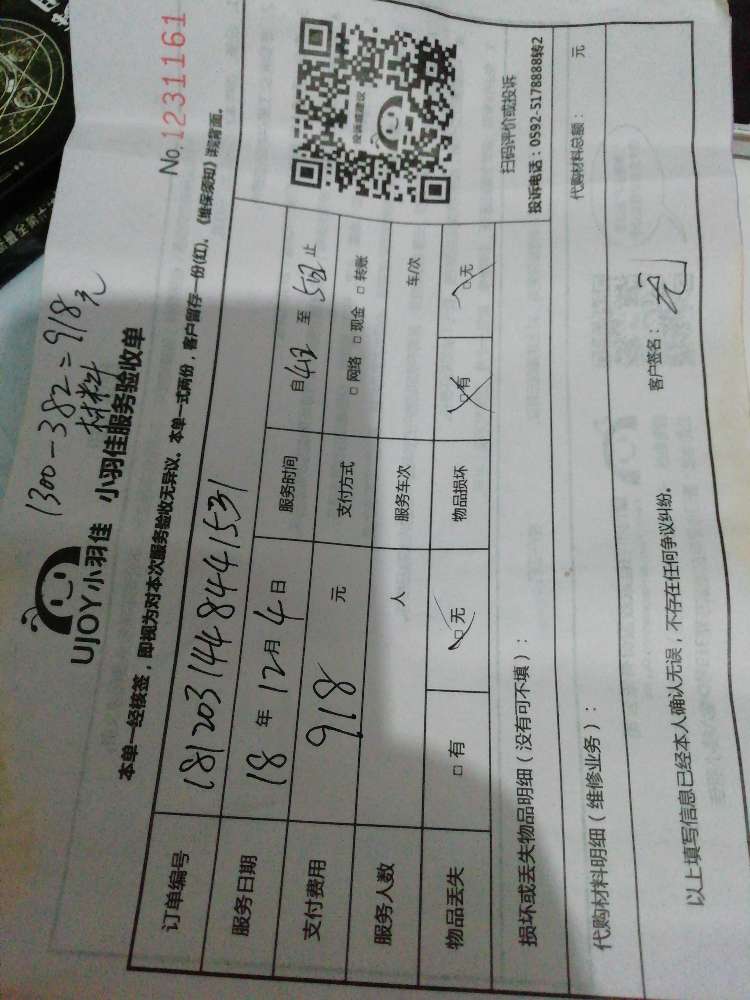 1300-382=918元
材料
No.1231161
UJOY小羽佳 小羽佳服务验收单
本单一经核签，即视为对本次服务验收无异议。本单一式两份，客户留存一份(红)。《维保须知》详现背面。
订单编号 181203144844 1531
服务日期 18年12月4日 服务时间 自 至 止
支付费用 918 元 支付方式 □ 网络 □ 现金 □ 转账
服务人数 人 服务车次 车/次
物品丢失 □ 有 □ 无 物品损坏 □ 有 □ 无
投诉或建议
扫码评价或投诉
投诉电话：0592-5178888转2
损坏或丢失物品明细（没有可不填）：
代购材料明细（维修业务）：
代购材料总额： 元
以上填写信息已经本人确认无误，不存在任何争议纠纷。
客户签名：